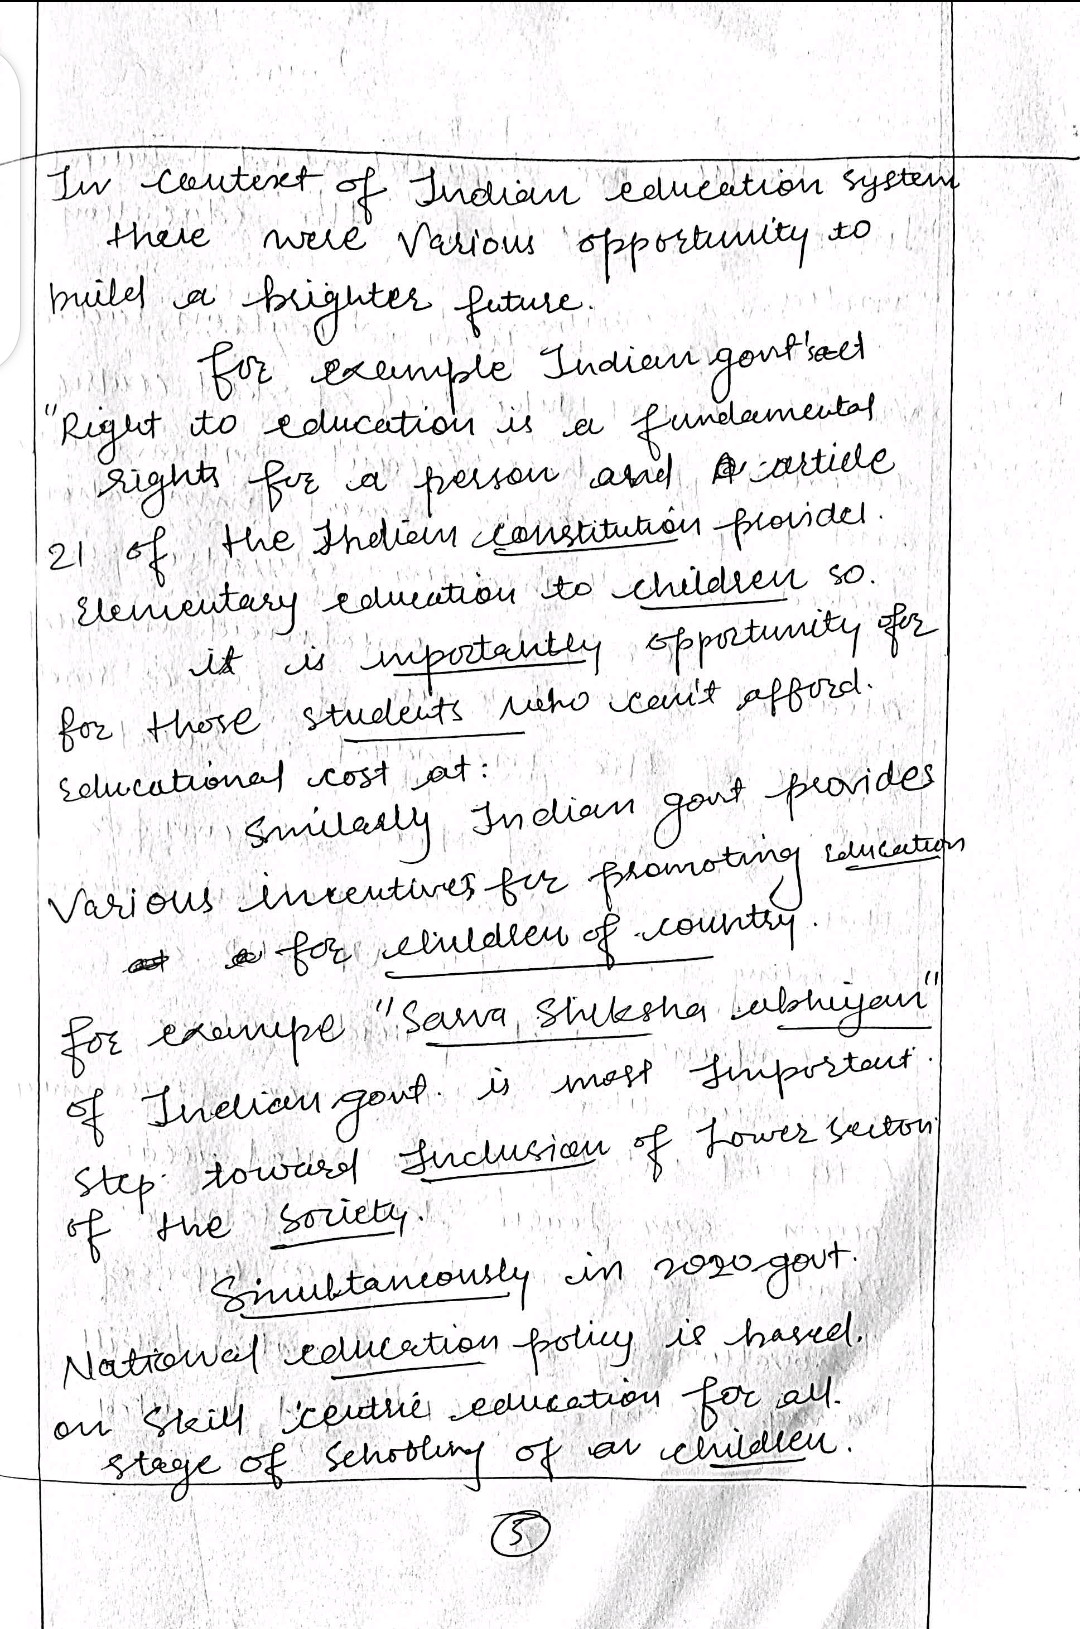 In context of Indian education system
there were Various opportunity to
build a brighter future.
for example Indian govt's act
"Right to education is a fundamental
rights for a person and article
21 of the Indian constitution provides.
Elementary education to children so.
it is importantly opportunity for
for those students who can't afford.
Educational cost at:
Smilarly Indian govt provides
Various incentives for promoting education
for children of country.
for exampe "Sarva Shiksha abhiyan"
of Indian govt. is most Important.
Step toward Inclusion of Lower
of the society.
Simultaneously in 2020 govt.
National education policy is based.
on Skill centric education for all.
stage of Schooling of a children.
5